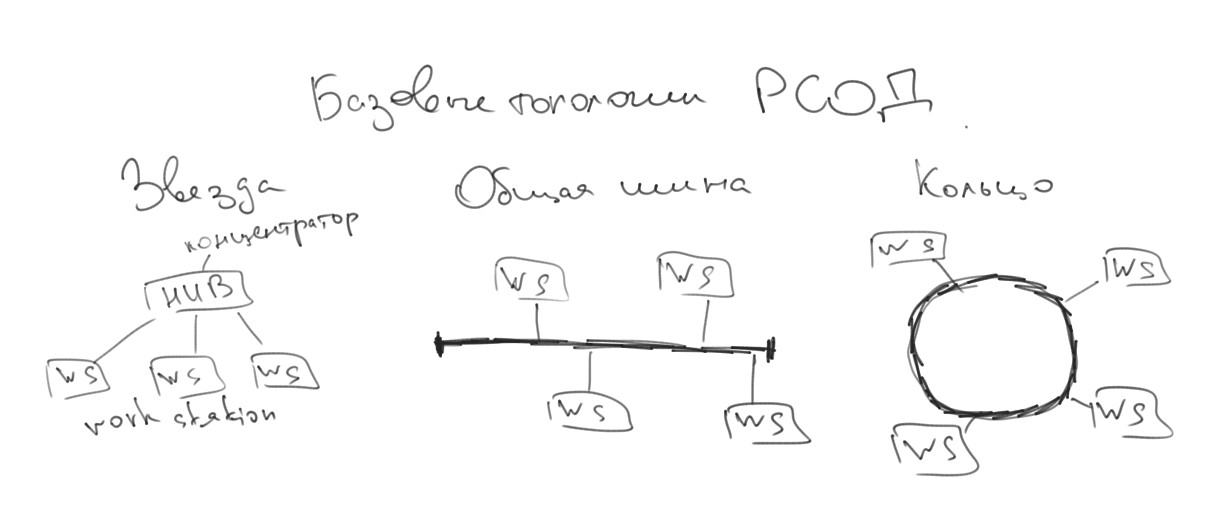 Базовые топологии РСОД
Звезда
концентратор
HUB
WS
WS
WS
work station
Общая шина
WS
WS
WS
WS
Кольцо
WS
WS
WS
WS